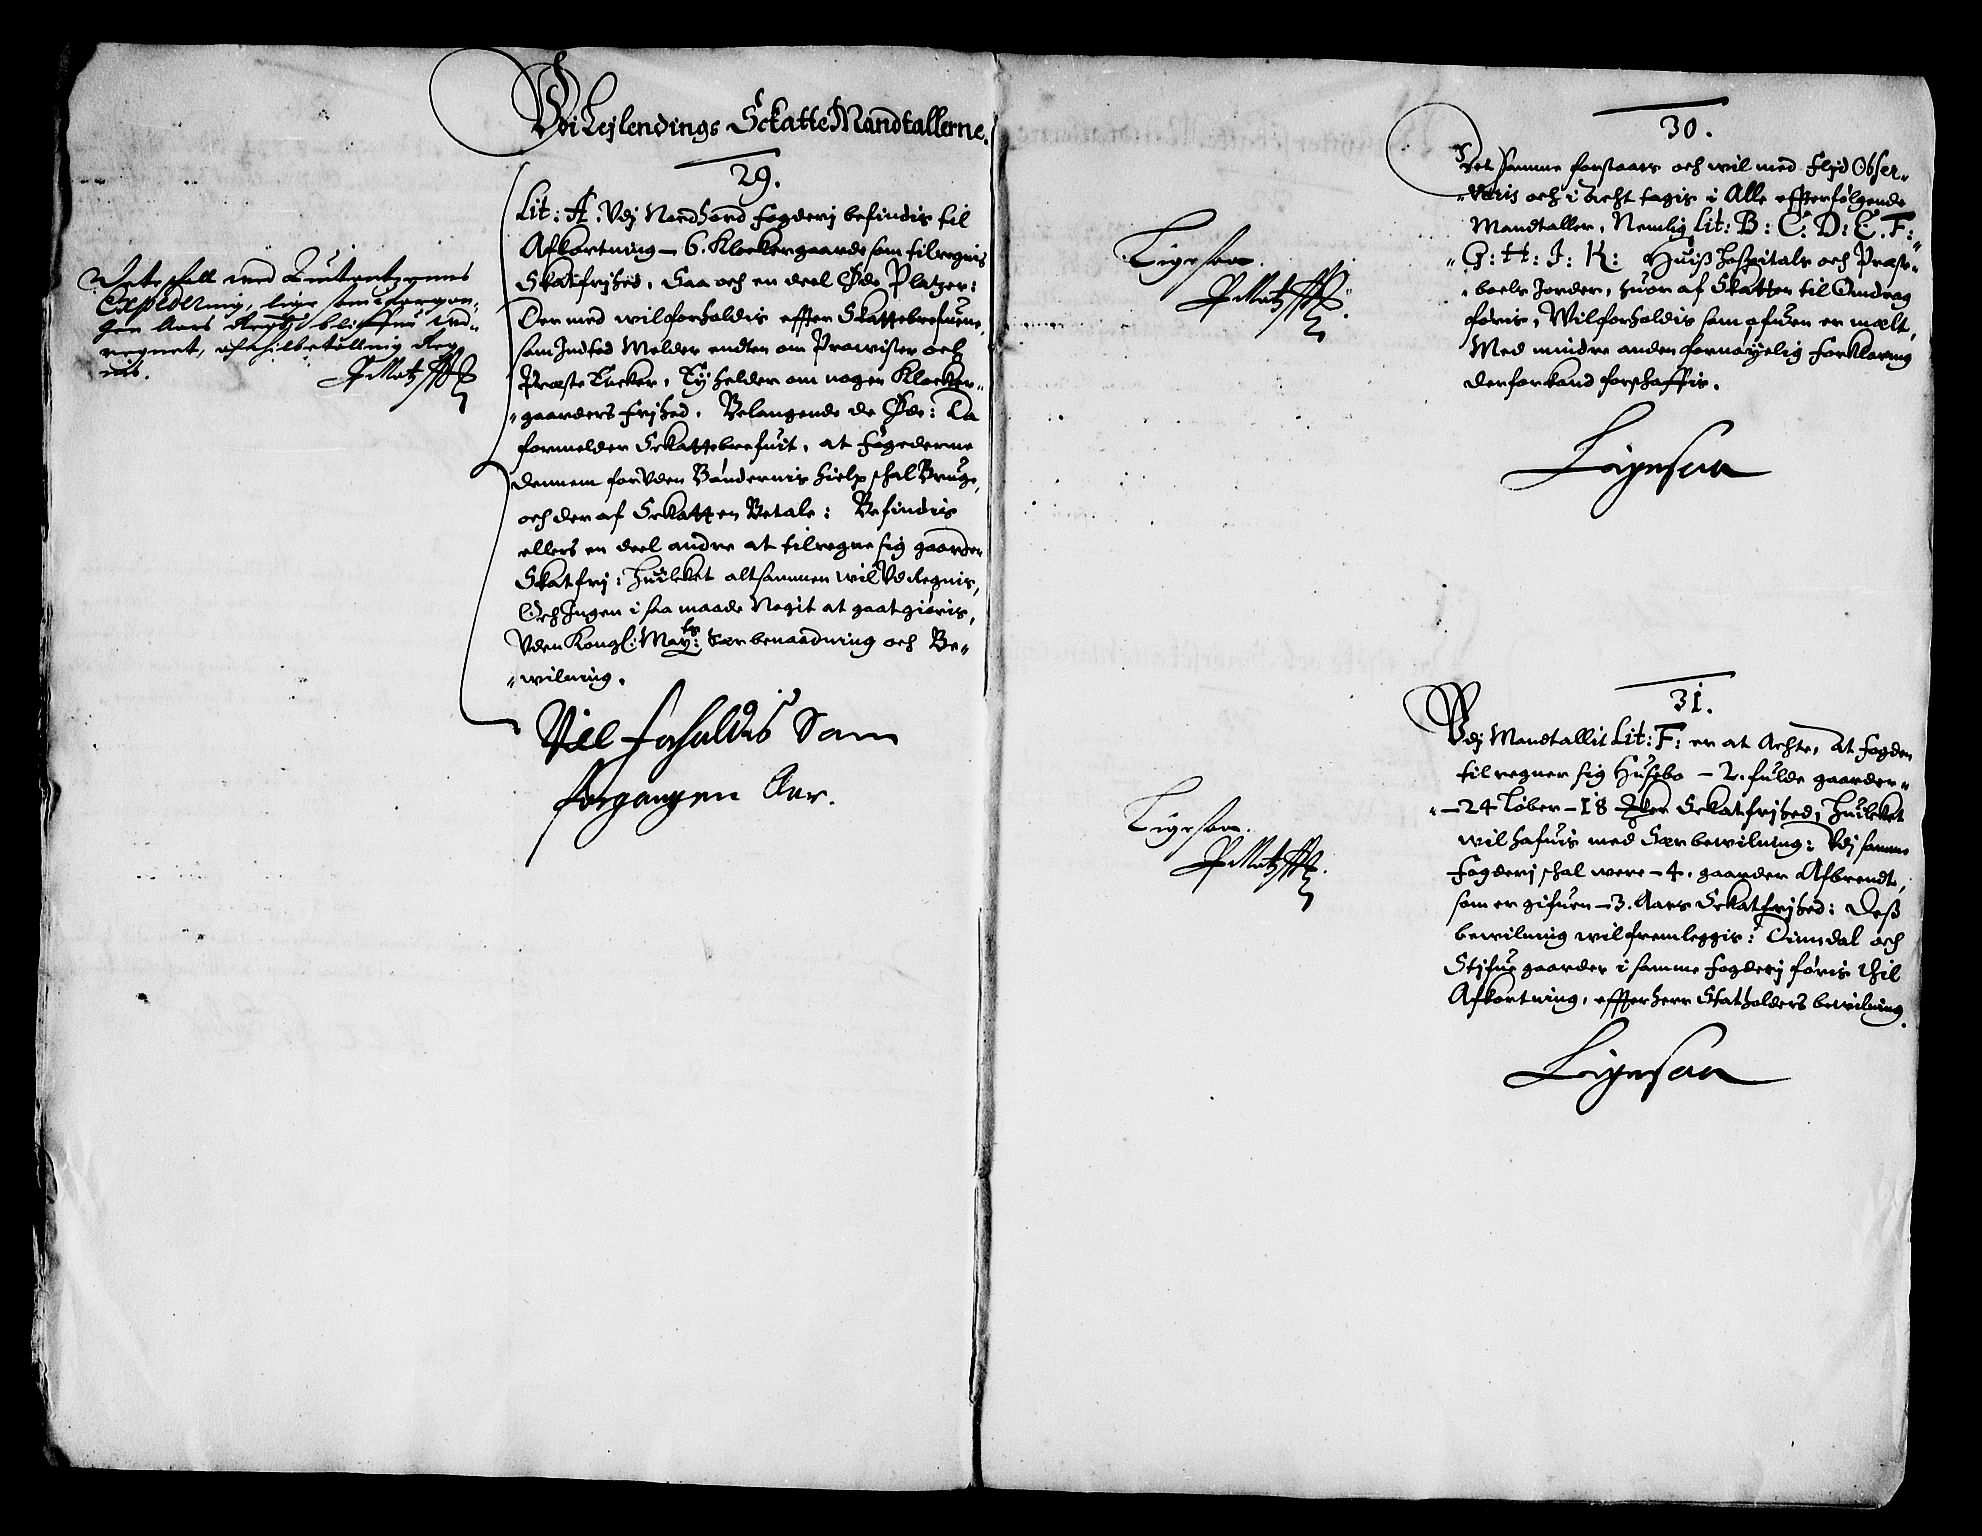 Udi Lejlendings Sckatte Mandtallerne.
29.
Lit: A. Vdj Nordhord fogderj befindis til
Afkortning – 6. Klockergaarde som tilregnis
Skatfrjhed, Saa och en deel Øde Platzer:
Der med wil forholdis effter Skattebrefuene,
som Indted Melder endten om Prowister och
Præste Encker, Ej heller om nogen Klocker„
„gaarders frjhed. Belangende de Øde: Da
formelder Sckattebrefuit, at fogederne
dennem for Vden Bøndernis hielp schal Bruge,
och der af Sckatten Betale: Befindis
ellers en deel andre at tilregne sig gaarder
Skatfrj: Huilcket altsammen wil Vd Regnis,
Och Ingen i saa maade Nogit at gaatgiøris,
Vden Kongl: May: tz Særbenaadning och Be„
„wilning.
Viel forholdis Som
forgangen Aar.
Dete schall ved Quitantzernes
Expedering, lige som i forgan„
gen Aars bliffue Ud„
regnet,
P Motzf
30.
Det samme forstaars och wil med Flid Obser„
„veris och i Acht tagis i Alle effterfølgende
Mandtaller, Nemlig Lit: B: C: D: E. F:„
„G: H: I: K: Huiß Hospitals och Præste„
„boels Jorder, huor af Skatten til Omdrag
føris, Wil forholdis som ofuen er mælt,
Med mindre anden fornøyelig forklaring
derfor kand forschaffis.
Ligesaa
Ligesaa.
P Motzf
31.
Vdj Mandtallit Lit: F: er at Achte, at fogden
tilregner sig Husebo – 2. fulde gaarder„
„– 24 Løber – 18 Sckatfrjhed, Huilcket
wil hafuis med Særbewilning: Vdj samme
Fogderj schal were – 4. gaarder Afbrendt,
som er gifuen – 3. Aars Sckatfrjhed: Deß
bewilning wil fremleggis: Oinndal och
Stifue gaarder i samme fogderj føris thil
Afkortning, effter herr Stathollders bewilning.
Ligesaa
Ligesaa.
P Motzf